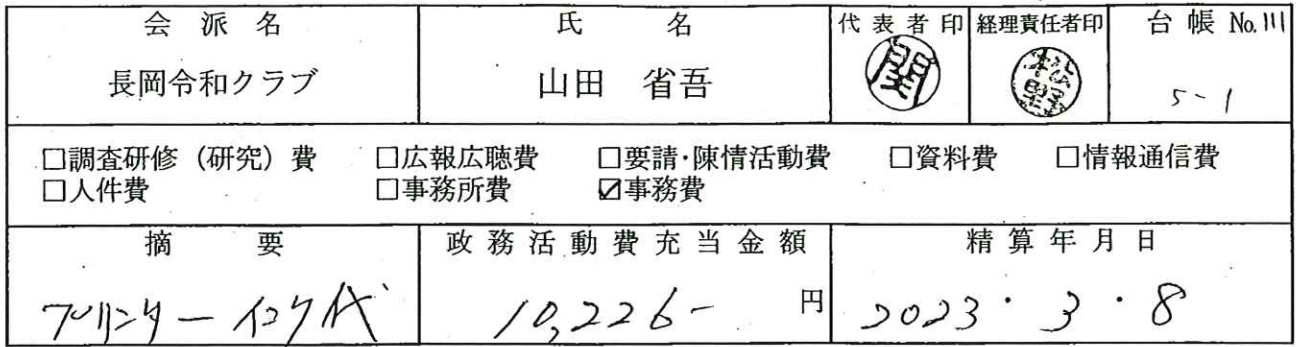 会派名 氏名 代表者印 経理責任者印 台帳No.111
長岡令和クラブ 山田 省吾 関 5-1
□調査研修（研究）費 □広報広聴費 □要請・陳情活動費 □資料費 □情報通信費
□人件費 □事務所費 ☑事務費
摘要 政務活動費充当金額 精算年月日
プリンターインク代 10,226- 円 2023・3・8